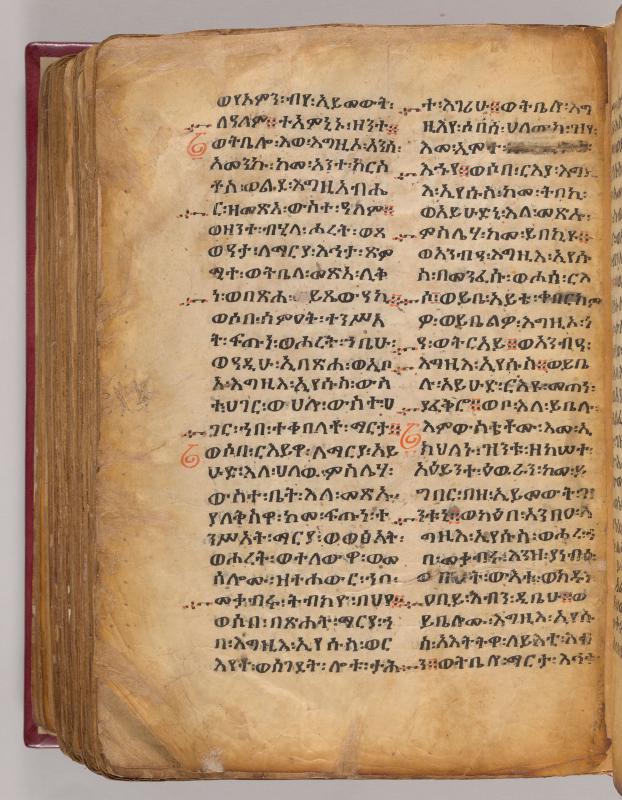 ወየአምን፡ብየ፡ኢይመውት፡
ለዓለም፡፡ተአምኒኑ፡ዘንተ፡
ወትቤሎ፡እወ፡እግዚኦ፡አንሰ፡
አመንኩ፡ከመ፡አንተ፡ክርስ
ቶስ፡ወልደ፡እግዚአብሔ
ር፡ዘመጽአ፡ውስተ፡ዓለም፡፡
ወዘንተ፡ብሂላ፡ሖረት፡ወጸ
ወዓታ፡ለማርያ፡እኅታ፡ጽም
ሚተ፡ወትቤላ፡መጽአ፡ሊቅ
ነ፡ወበጽሐ፡ይጼውዓኪ፡፡
ወሶበ፡ሰምዐት፡ተንሥአ
ት፡ፍጡነ፡ወሖረት፡ኀቤሁ፡
ወዓዲሁ፡ኢበጽሐ፡ወኢቦ
አ፡እግዚእ፡ኢየሱስ፡ውስ
ተ፡ሀገር፡ወሀሎ፡ውስተ፡ሀ
ገር፡ኀበ፡ተቀበለቶ፡ማርታ፡፡
ወሶበ፡ርእይዋ፡ለማርያ፡አይ
ሁድ፡እለ፡ሀለዉ፡ምስሌሃ፡
ውስተ፡ቤት፡እለ፡መጽኡ፡
ያለቅስዋ፡ከመ፡ፍጡነ፡ተ
ንሥአት፡ማርያ፡ወወፅአት፡
ወሖረት፡ወተለውዋ፡ወመ
ሰሎሙ፡ዘተሐውር፡ኀበ፡
መቃብሩ፡ትብክየ፡በህየ፡፡
ወሶበ፡በጽሐት፡ማርያ፡ኀ
በ፡እግዚእ፡ኢየሱስ፡ወር
እየቶ፡ወሰገደት፡ሎቱ፡ታሕ
ተ፡እገሪሁ፡፡ወትቤሎ፡እግ
ዚእየ፡ሶበሰ፡ሀለውከ፡ዝየ፡
እመ፡ኢሞተ፡
እኁየ፡፡ወሶበ፡ርእያ፡እግዚ
እ፡ኢየሱስ፡ከመ፡ትበኪ፡
ወአይሁድኒ፡እለ፡መጽኡ፡
ምስሌሃ፡ከመ፡ይበክዩ፡፡
ወአንብዐ፡እግዚእ፡ኢየሱ
ስ፡በመንፈሱ፡ወሖሰ፡ርእ
ሶ፡፡ወይቤ፡አይቴ፡ቀበርክም
ዎ፡ወይቤልዎ፡እግዚኦ፡ነ
ዓ፡ወትርአይ፡፡ወአንብዓ፡
እግዚእ፡ኢየሱስ፡፡ወይቤ
ሉ፡አይሁድ፡ርእዩ፡መጠነ፡
ያፈቅሮ፡፡ወቦ፡እለ፡ይቤሉ፡
እምውስቴቶሙ፡እመ፡ኢ
ክህለኑ፡ዝንቱ፡ዘከሠተ፡
አዕይንተ፡ዕዉራን፡ከመ፡ይ
ግበር፡በዘ፡ኢይመውት፡ዝ
ንቱኒ፡፡ወካዕበ፡አንበዐ፡እ
ግዚእ፡ኢየሱስ፡ወሖረ፡ኀ
በ፡መቃብሩ፡እንዘ፡ያነብዕ
ወበአት፡ውእቱ፡ወክዱን
ዐቢይ፡እብን፡ዲቤሁ፡፡ወ
ይቤሎሙ፡እግዚእ፡ኢየሱ
ስ፡አእትትዋ፡ለይእቲ፡እብ
ን፡፡ወትቤሎ፡ማርታ፡እኅቱ